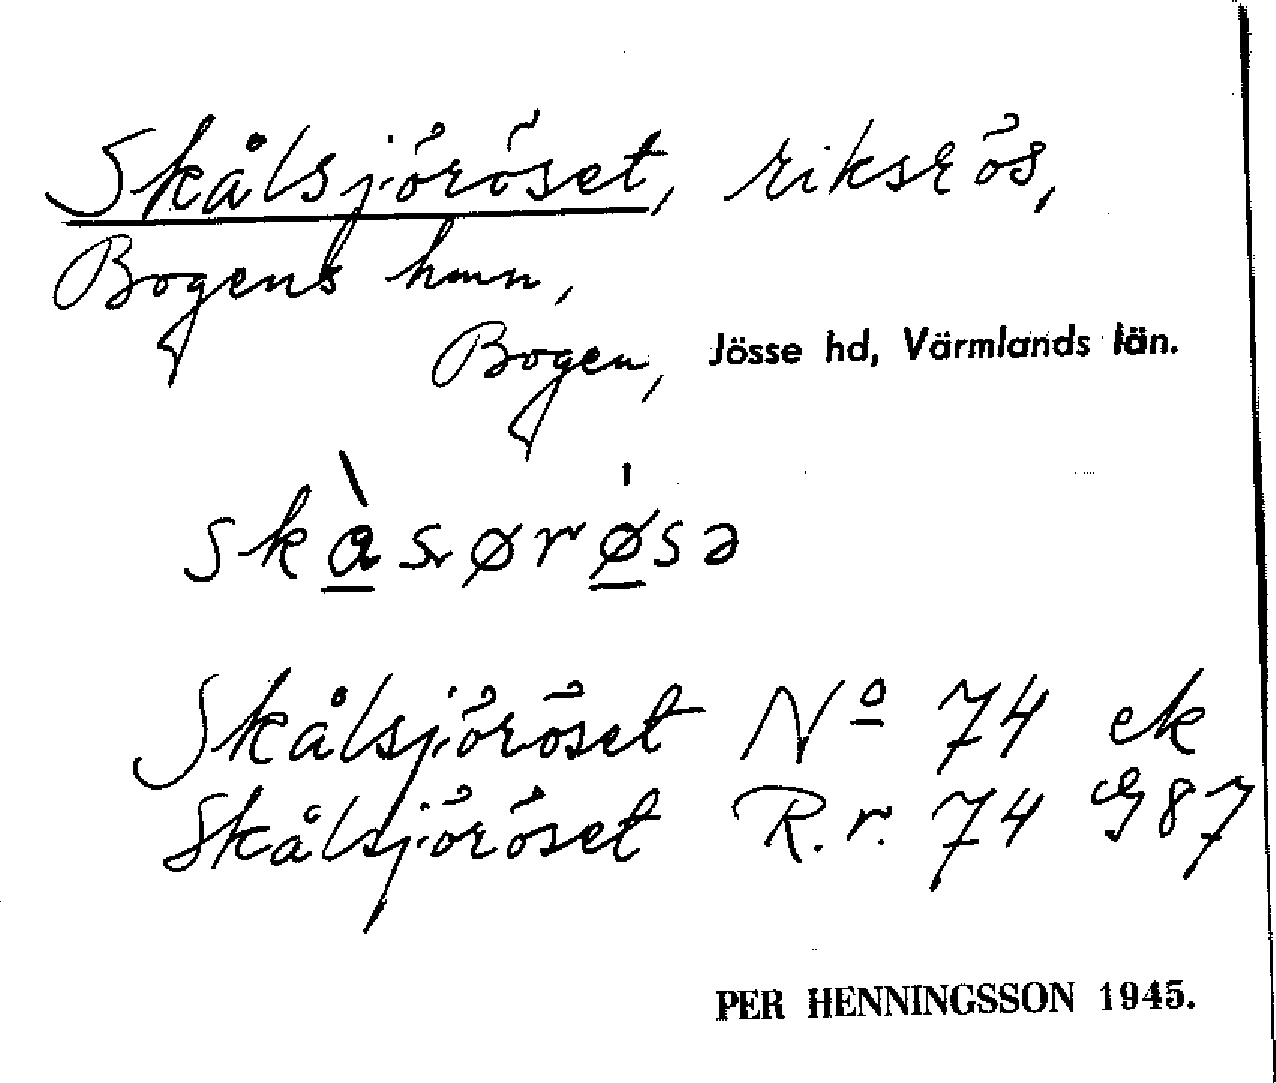 Skålsjöröset, riksrös,
Bogens hmn,
Bogen, Jösse hd, Värmlands län.
skàsørøsə
Skålsjöröset Nº 74 ek
Skålsjöröset R.r. 74 G87
PER HENNINGSSON 1945.